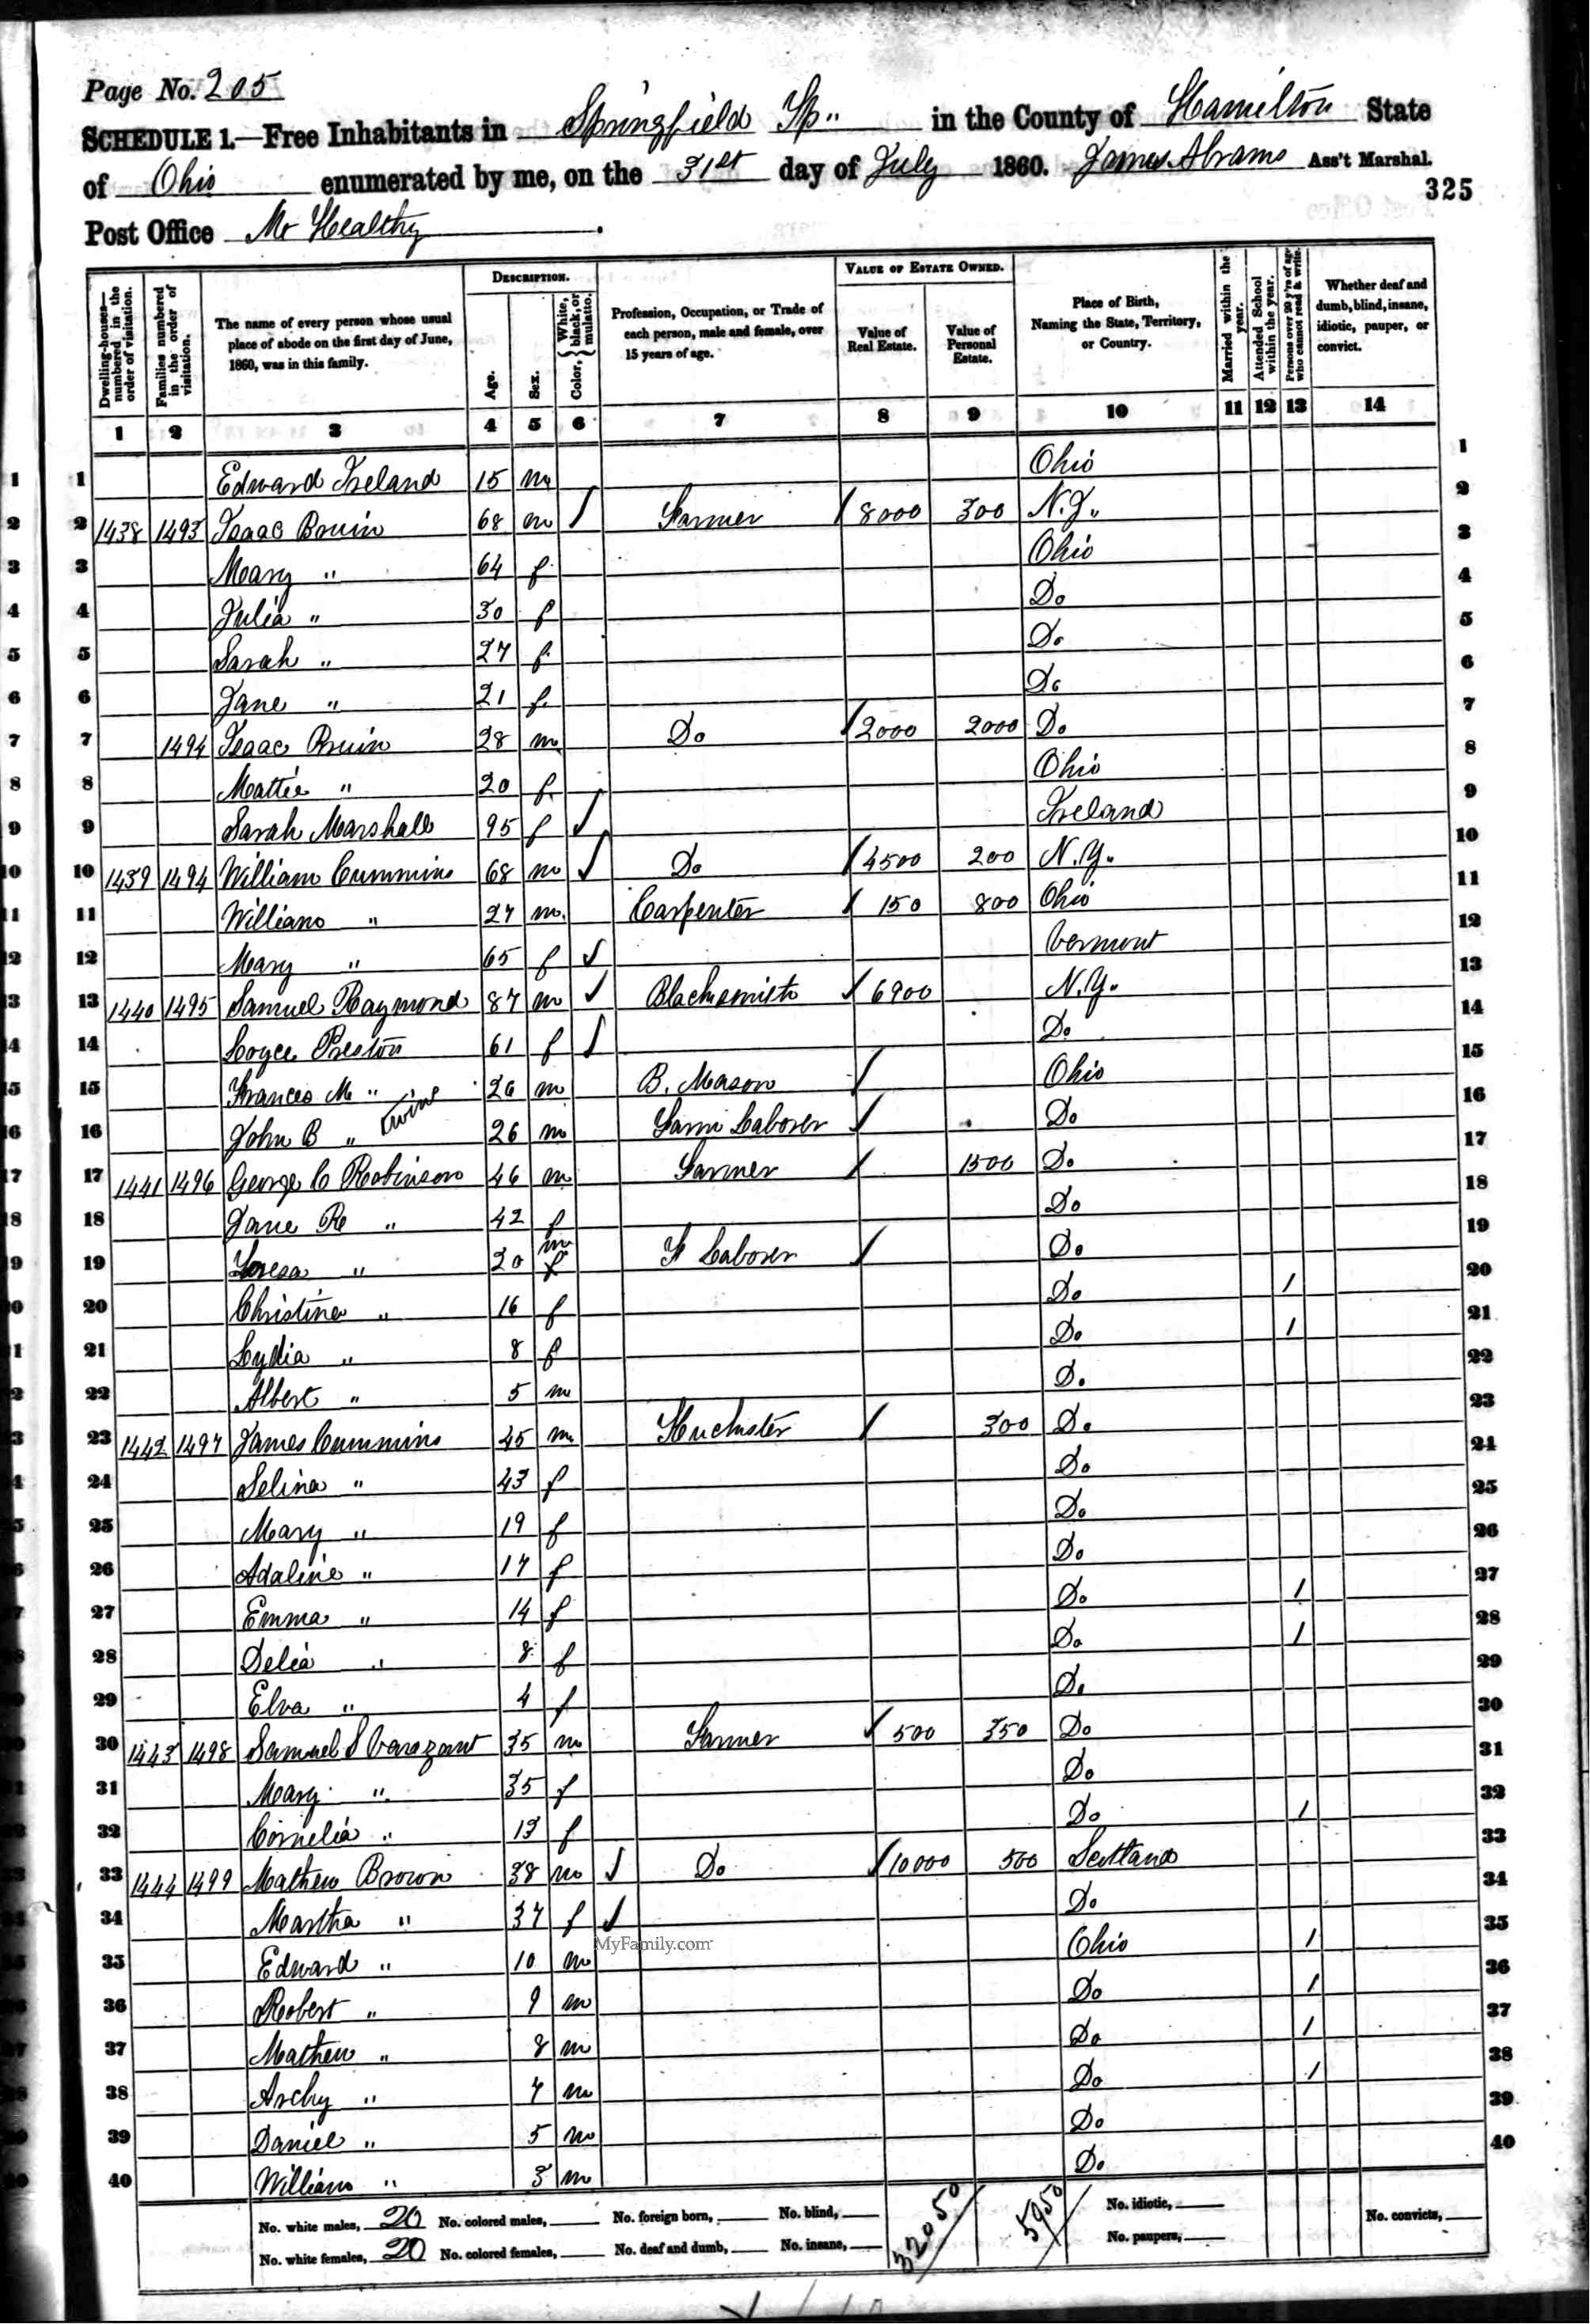 Page No. 205
SCHEDULE 1.—Free Inhabitants in Springfield Tp.. in the County of Hamilton State
of Ohio enumerated by me, on the 31st day of July 1860. James Abrams Ass't Marshal.
325
Post Office Mt Healthy
DESCRIPTION. VALUE OF ESTATE OWNED.
Dwelling-houses—numbered in the order of visitation. Families numbered in the order of visitation. The name of every person whose usual place of abode on the first day of June, 1860, was in this family. Age. Sex. Color, { White, black, or mulatto. Profession, Occupation, or Trade of each person, male and female, over 15 years of age. Value of Real Estate. Value of Personal Estate. Place of Birth, Naming the State, Territory, or Country. Married within the year. Attended School within the year. Persons over 20 y'rs of age who cannot read & write. Whether deaf and dumb, blind, insane, idiotic, pauper, or convict.
1 2 3 4 5 6 7 8 9 10 11 12 13 14
1 Edward Ireland 15 m Ohio 1
2 1438 1493 Isaac Bruin 68 m / Farmer / 8000 300 N.J.. 2
3 Mary " 64 f Ohio 3
4 Julia " 30 f Do 4
5 Sarah " 27 f Do 5
6 Jane " 21 f Do 6
7 1494 Isaac Bruin 28 m Do / 2000 2000 Do 7
8 Mattie " 20 f Ohio 8
9 Sarah Marshall 95 f / Ireland 9
10 1439 1494 William Cummins 68 m / Do / 4500 200 N.Y. 10
11 William " 27 m Carpenter / 150 800 Ohio 11
12 Mary " 65 f / Vermont 12
13 1440 1495 Samuel Raymond 87 m / Blacksmith / 6900 N.Y. 13
14 Preston 61 f / Do 14
15 Frances M " 26 m B. Mason / Ohio 15
16 John B " Twins 26 m Farm Laborer / Do 16
17 1441 1496 George C Robinson 46 m Farmer / 1500 Do 17
18 Jane R " 42 f Do 18
19 " 20 m f F Laborer / Do 19
20 Christine " 16 f Do / 20
21 Lydia " 8 f Do / 21
22 Albert " 5 m Do 22
23 1442 1497 James Cummins 45 m Huckster / 300 Do 23
24 Selina " 43 f Do 24
25 Mary " 19 f Do 25
26 Adaline " 17 f Do 26
27 Emma " 14 f Do / 27
28 Delia " 8 f Do / 28
29 Elva " 4 f Do 29
30 1443 1498 Samuel S 35 m Farmer / 500 350 Do 30
31 Mary " 35 f Do 31
32 Cornelia " 13 f Do / 32
33 1444 1499 Mathew Brown 38 m / Do / 10000 500 Scotland 33
34 Martha " 37 f / Do 34
35 Edward " 10 m Ohio / 35
36 Robert " 9 m Do / 36
37 Mathew " 8 m Do / 37
38 Archy " 7 m Do / 38
39 Daniel " 5 m Do 39
40 William " 3 m Do 40
MyFamily.com
No. white males, 20 No. colored males, No. foreign born, No. blind, 32050 5950 No. idiotic, No. convicts,
No. white females, 20 No. colored females, No. deaf and dumb, No. insane, No. paupers,